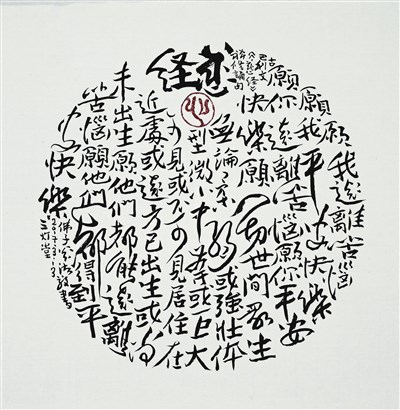 慈経
願我遠離苦惱
願我平安快樂
願你遠離苦惱願你平安
快樂願一切世間眾生
無論柔弱或強壯体
型微小中等或巨大
可見或不可見居住在
近處或遠方已出生或尚
未出生願他們都能遠離
苦惱願他們都得到平
安快樂